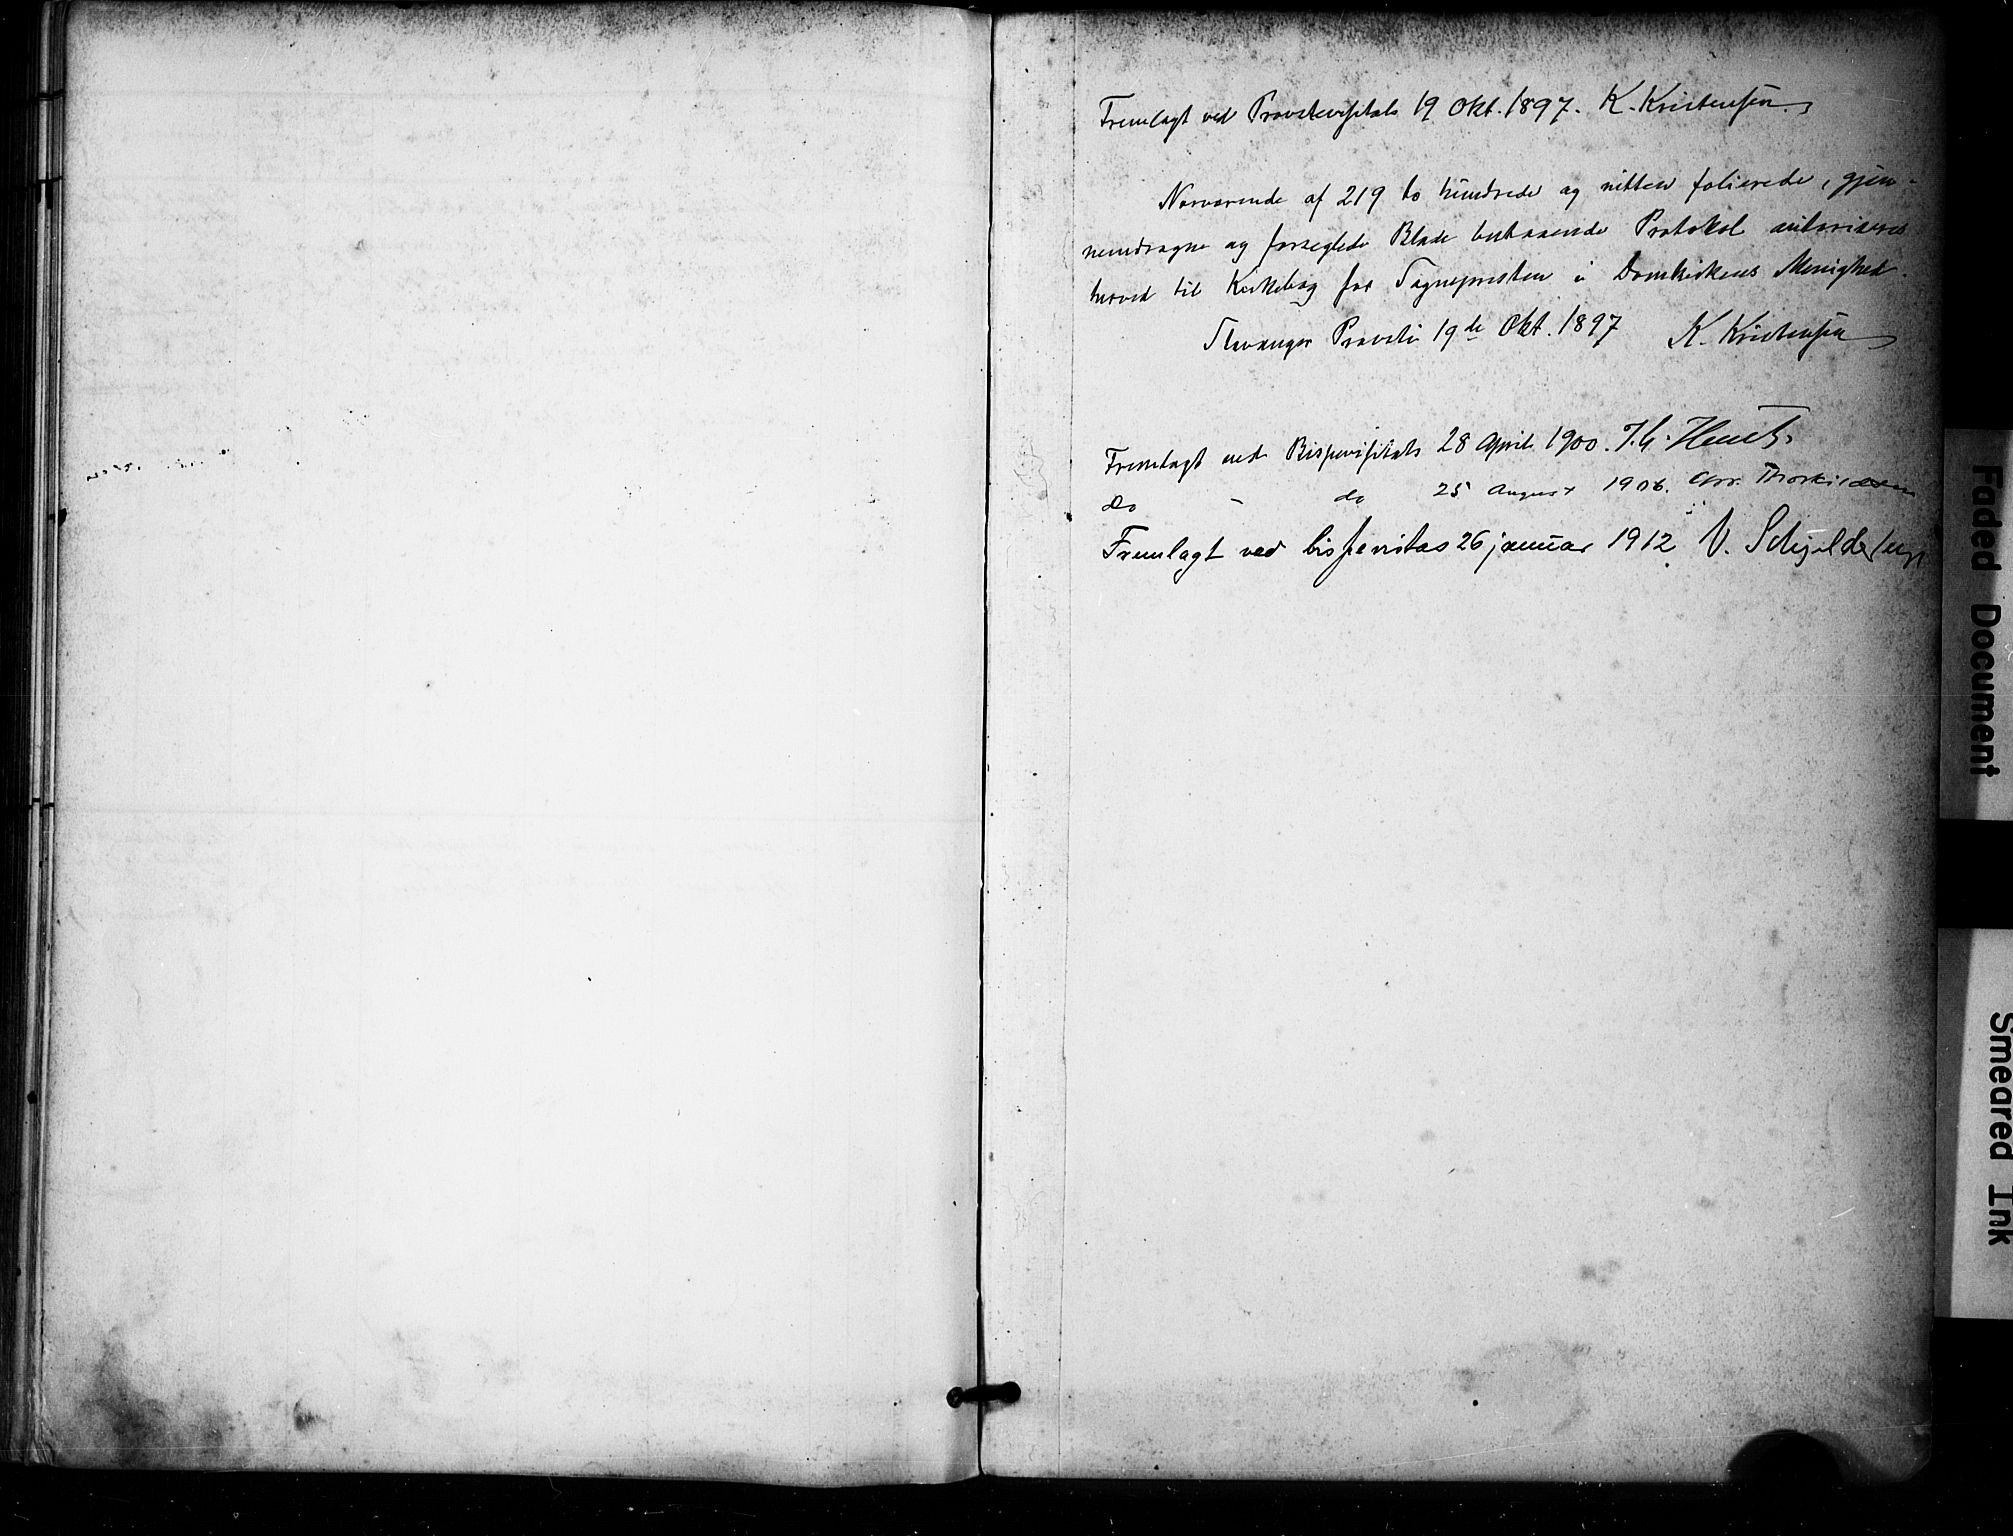 Fremlagt ved Provstevisitats 19 Okt. 1897. K. Kristensen
Nærværende af 219 to hundrede og nitten folierede, gjen-
nemdragne og forseglede Blade bestaaende Protokol autoriseres
herved til Kirkebog for Sognepresten i Domkirkens Menighed.
Stavanger Provsti 19de Okt. 1897 K. Kristensen
Fremlagt ved Bispevisitats 28 April 1900.
do - do 25 August 1906. Chr. Thorkildsen
Fremlagt ved bispevisitas 26 januar 1912. V. Schjelderup
Faded Document
Smeared Ink